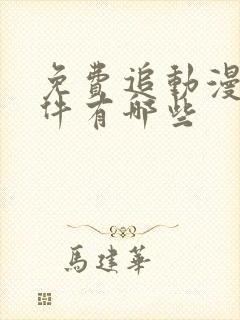 免費追動漫
件有哪些
馬建華